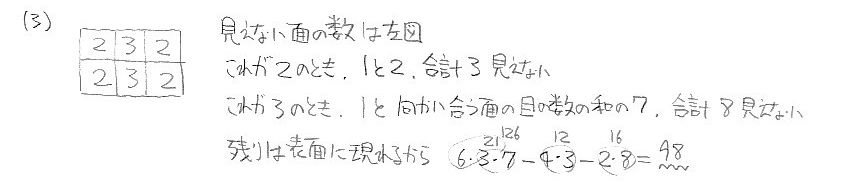 (3)
2 3 2
2 3 2
見えない面の数は左図
これが2のとき、1と2、合計3見えない
これが3のとき、1と向かい合う面の目の数の和の7、合計8見えない
21 126 12 16
残りは表面に現れるから 6・3・7 - 4・3 - 2・8 = 98